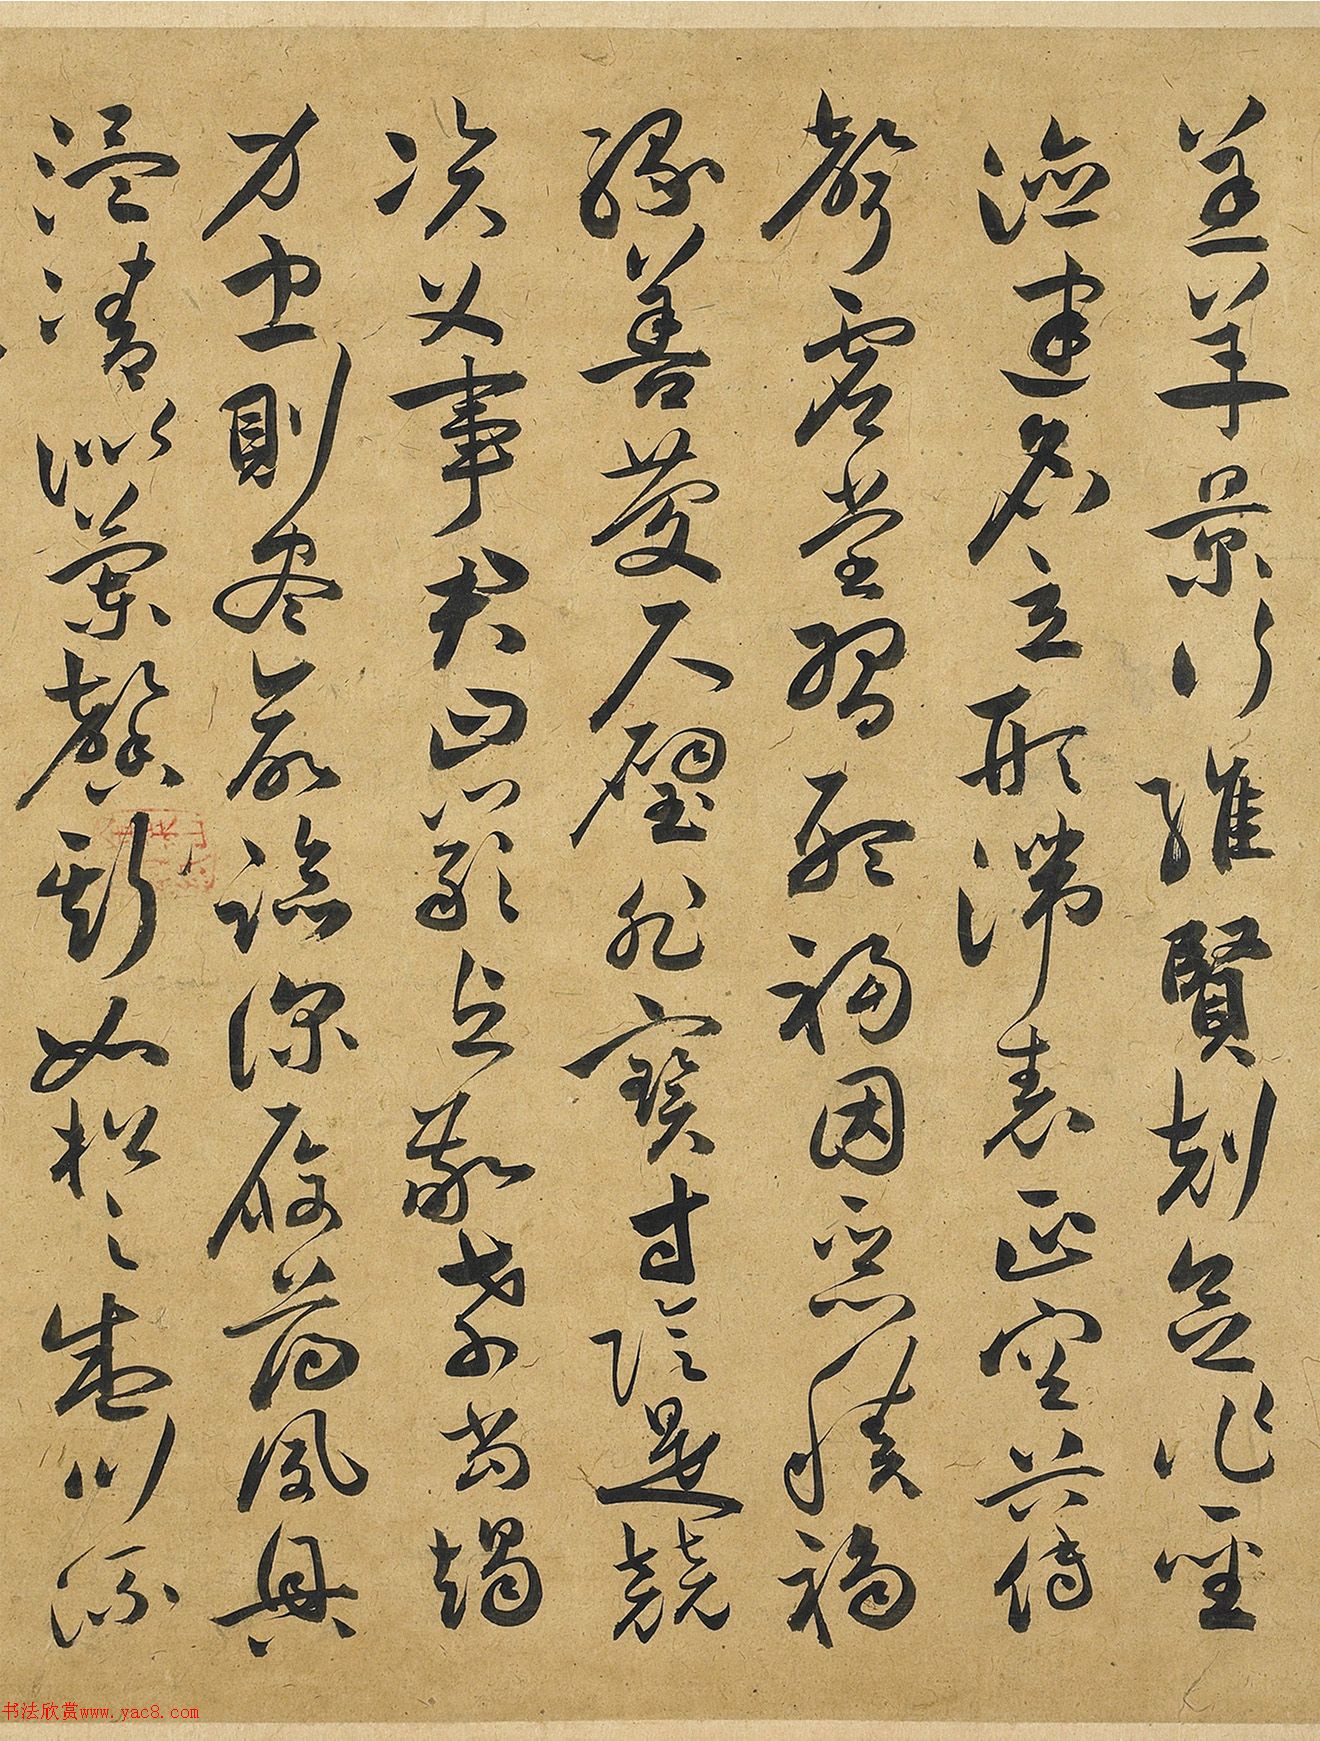 羔羊景行維賢剋念作聖
德建名立形端表正空谷傳
聲虛堂習聽禍因惡積福
緣善慶尺璧非寶寸陰是競
資父事君曰嚴與敬孝當竭
力忠則盡命臨深履薄夙興
溫清似蘭馨斯如松之盛川流
书法欣赏www.yac8.com